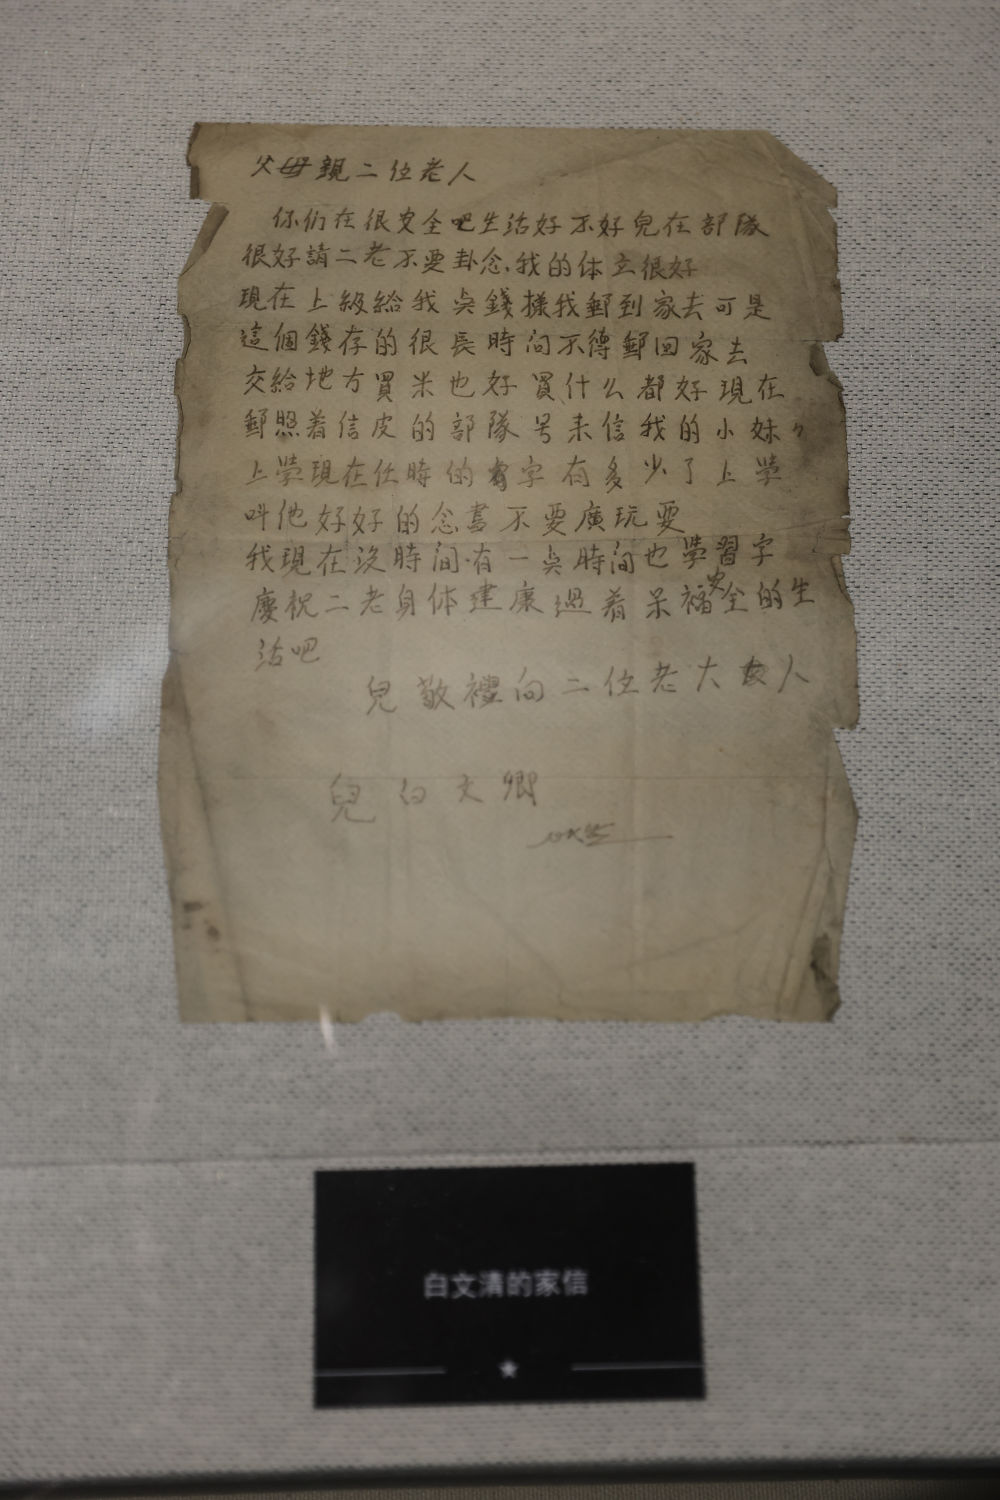 父母親二位老人
你们在很安全吧生活好不好兒在部隊
很好請二老不要卦念,我的体立很好
現在上級給我点錢樣我郵到家去可是
這個錢存的很長時间不得郵回家去
交給地方買米也好買什么都好現在
郵照着信皮的部隊号来信我的小妹々
上學現在任時的字有多少了上學
叫他好好的念書不要廣玩耍
我現在沒時間有一点時間也學習字
慶祝二老身体建康過着呆福安全的生
活吧
兒敬禮向二位老大人
兒白文卿
白文清的家信